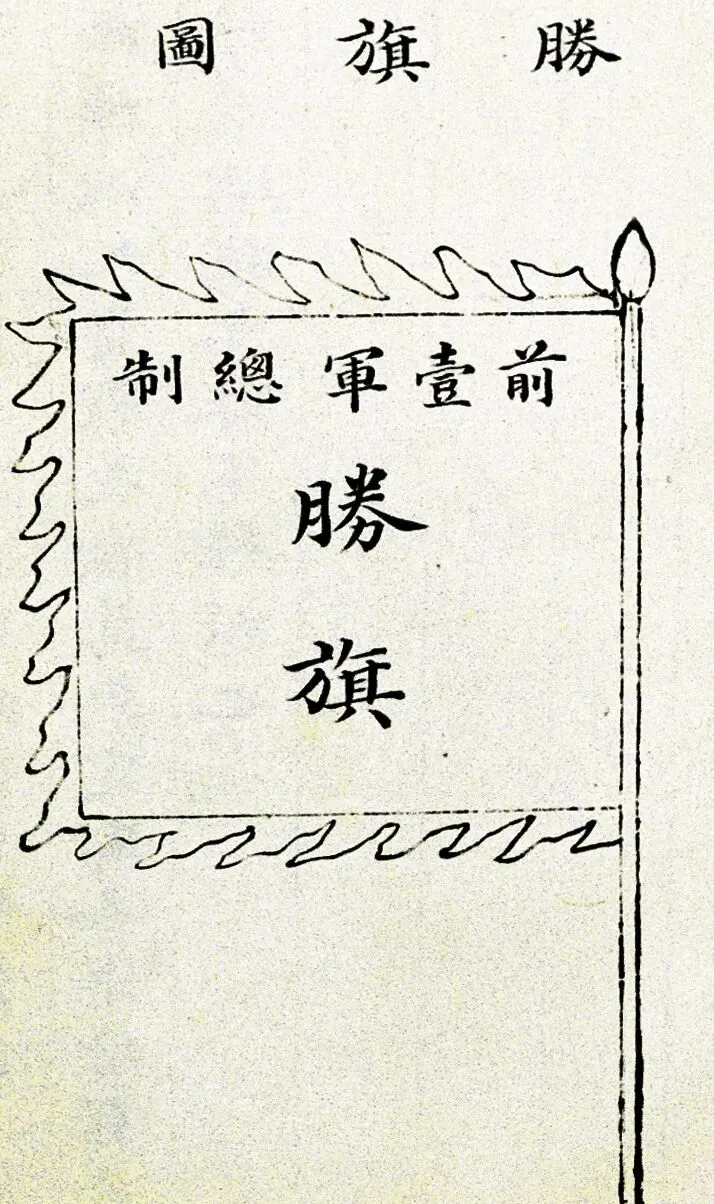 勝旗圖
前壹軍總制
勝
旗